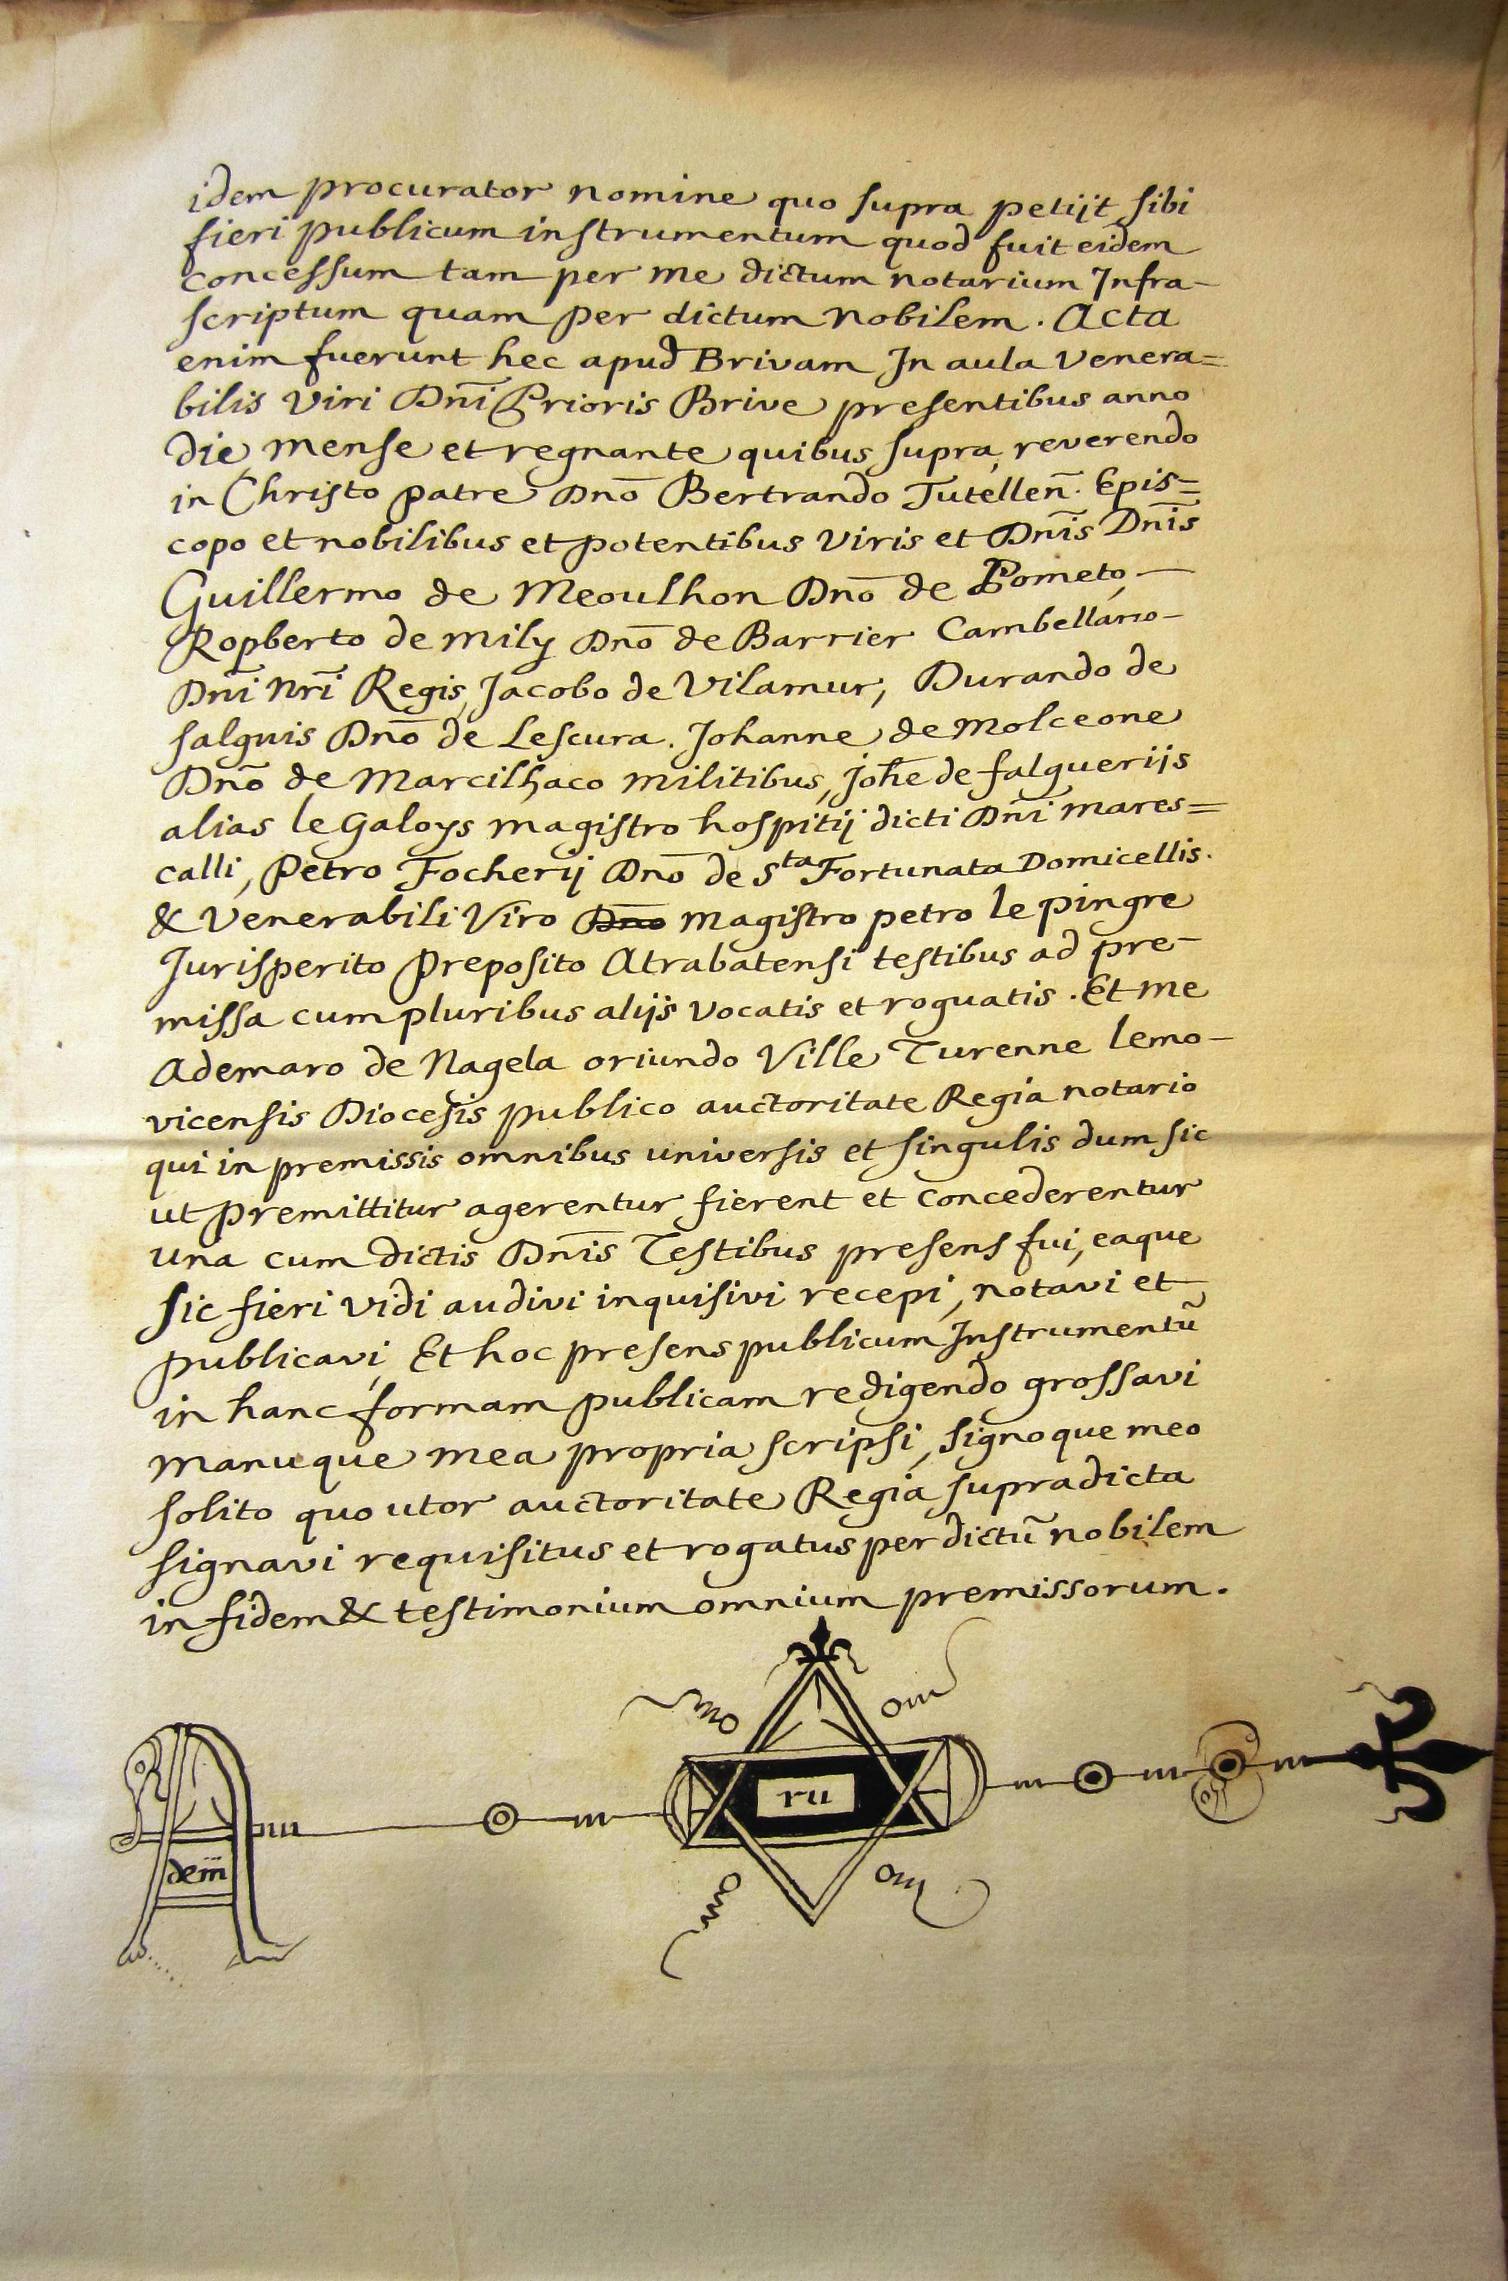 idem procurator nomine quo supra petijt sibi
fieri publicum instrumentum quod fuit eidem
concessum tam per me dictum notarium Infra-
scriptum quam per dictum nobilem. Acta
enim fuerunt hec apud Brivam In aula venera=
bilis viri Dnī Prioris Brive presentibus anno
die mense et regnante quibus supra, reverendo
in Christo patre Dnō Bertrando Tutelleñ. Epis=
copo et nobilibus et potentibus viris et Dnīs Dnīs
Guillermo de Meoulhon Dnō de Pometo,-
Ropberto de mily Dnō de Barrier Cambellano-
Dnī nrī Regis, Jacobo de Vilamur, Durando de
salguis Dnō de Lescura. Johanne de Molceone
Dnō de Marcilhaco militibus, Johē de falguerijs
alias le Galoys magistro hospitij dicti Dnī mares=
calli, Petro Focherij Dnō de Sta Fortunata Domicellis.
& venerabili Viro Dnō magistro petro le pingre
Jurisperito Preposito Atrabatensi testibus ad pre-
missa cum pluribus alijs vocatis et roguatis. Et me
Ademaro de Nagela oriundo Ville Turenne lemo-
vicensis Diocesis publico auctoritate Regia notario
qui in premissis omnibus universis et singulis dum sic
ut premittitur agerentur fierent et concederentur
una cum dictis Dnīs Testibus presens fui, eaque
sic fieri vidi audivi inquisivi recepi, notavi et
publicavi, Et hoc presens publicum Instrumentū
in hanc formam publicam redigendo grossavi
manuque mea propria scripsi, signoque meo
solito quo utor auctoritate Regia supradicta
signavi requisitus et rogatus per dictū nobilem
in fidem & testimonium omnium premissorum.
A
ru